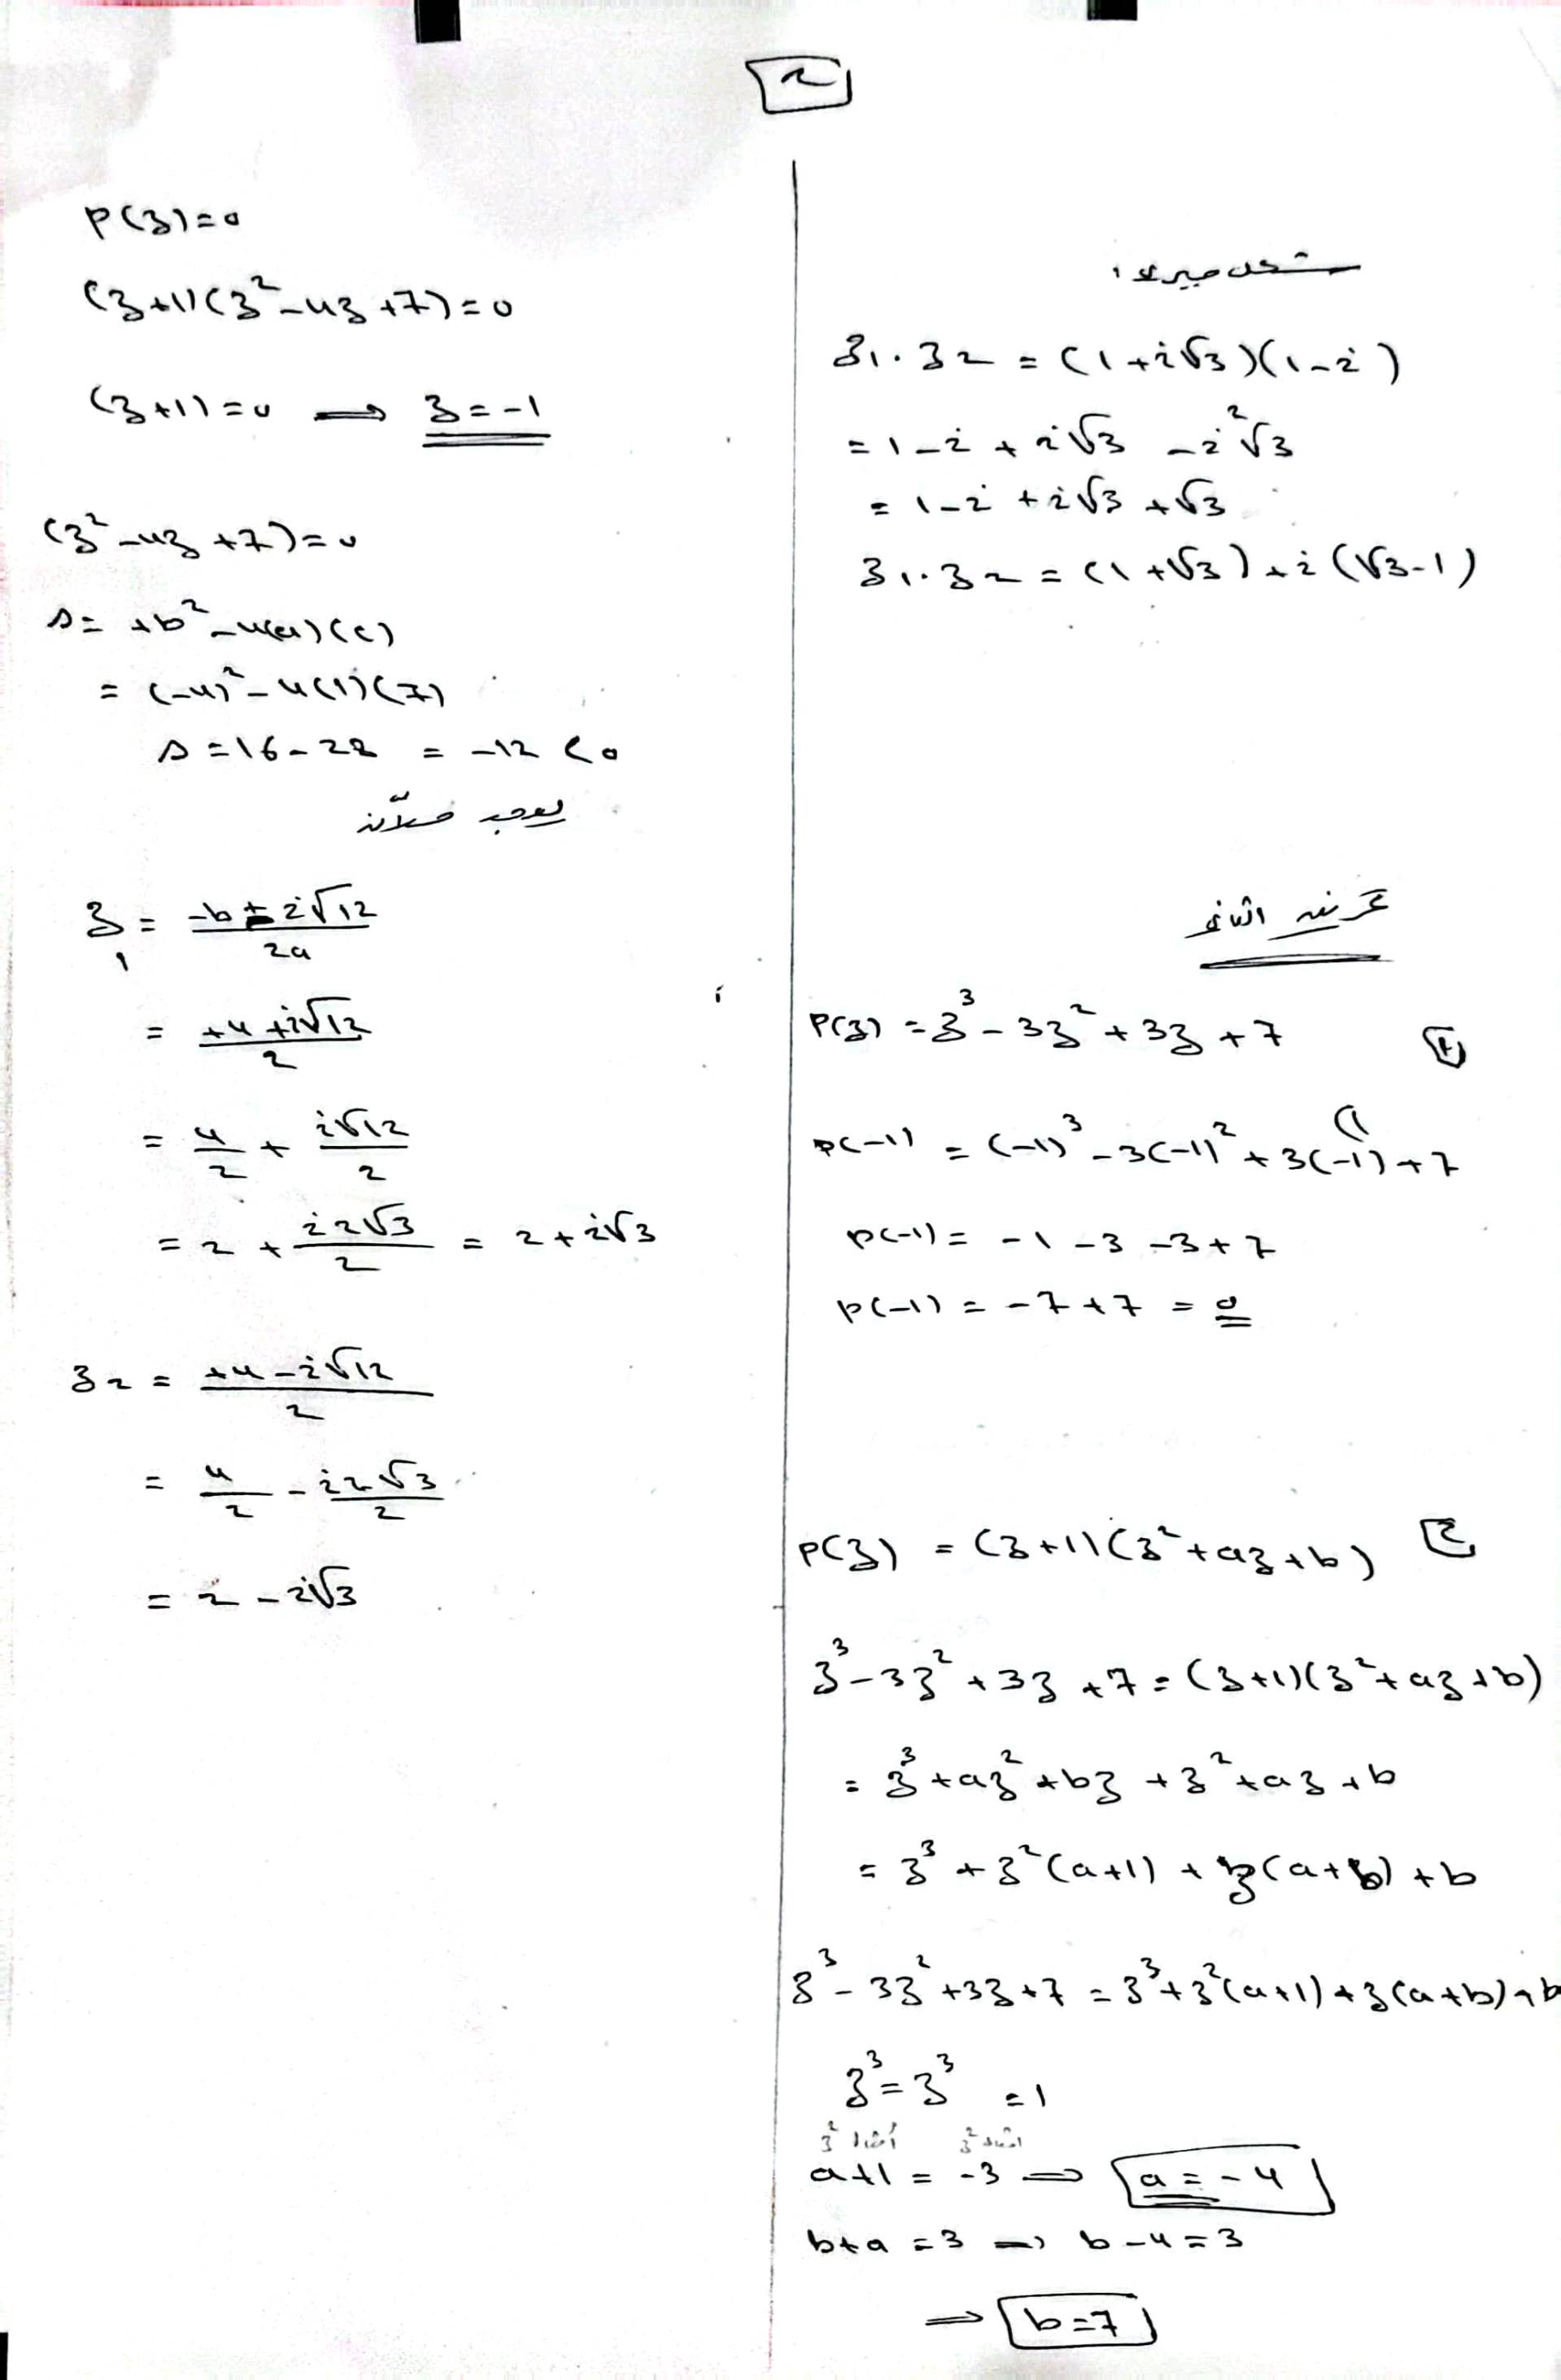 2
شكل جبري :
z1 . z2 = (1 + i√3)(1 - i)
= 1 - i + i√3 - i²√3
= 1 - i + i√3 + √3
z1 . z2 = (1 + √3) + i(√3 - 1)
P(z) = z³ - 3z² + 3z + 7
(1
P(-1) = (-1)³ - 3(-1)² + 3(-1) + 7
P(-1) = -1 - 3 - 3 + 7
P(-1) = -7 + 7 = 0
P(z) = (z+1)(z² + az + b)
z³ - 3z² + 3z + 7 = (z+1)(z² + az + b)
= z³ + az² + bz + z² + az + b
= z³ + z²(a+1) + z(a+b) + b
z³ - 3z² + 3z + 7 = z³ + z²(a+1) + z(a+b) + b
z³ = z³ = 1
z² z²
a+1 = -3 ⟹ a = -4
b+a = 3 ⟹ b - 4 = 3
⟹ b = 7
P(z) = 0
(z+1)(z² - 4z + 7) = 0
(z+1) = 0 ⟹ z = -1
(z² - 4z + 7) = 0
Δ = +b² - 4(a)(c)
= (-4)² - 4(1)(7)
Δ = 16 - 28 = -12 < 0
يوجد حلان
z1 = (-b + i√12)/2a
= (+4 + i√12)/2
= 4/2 + i√12/2
= 2 + i2√3/2 = 2 + i√3
z2 = (+4 - i√12)/2
= 4/2 - i2√3/2
= 2 - i√3